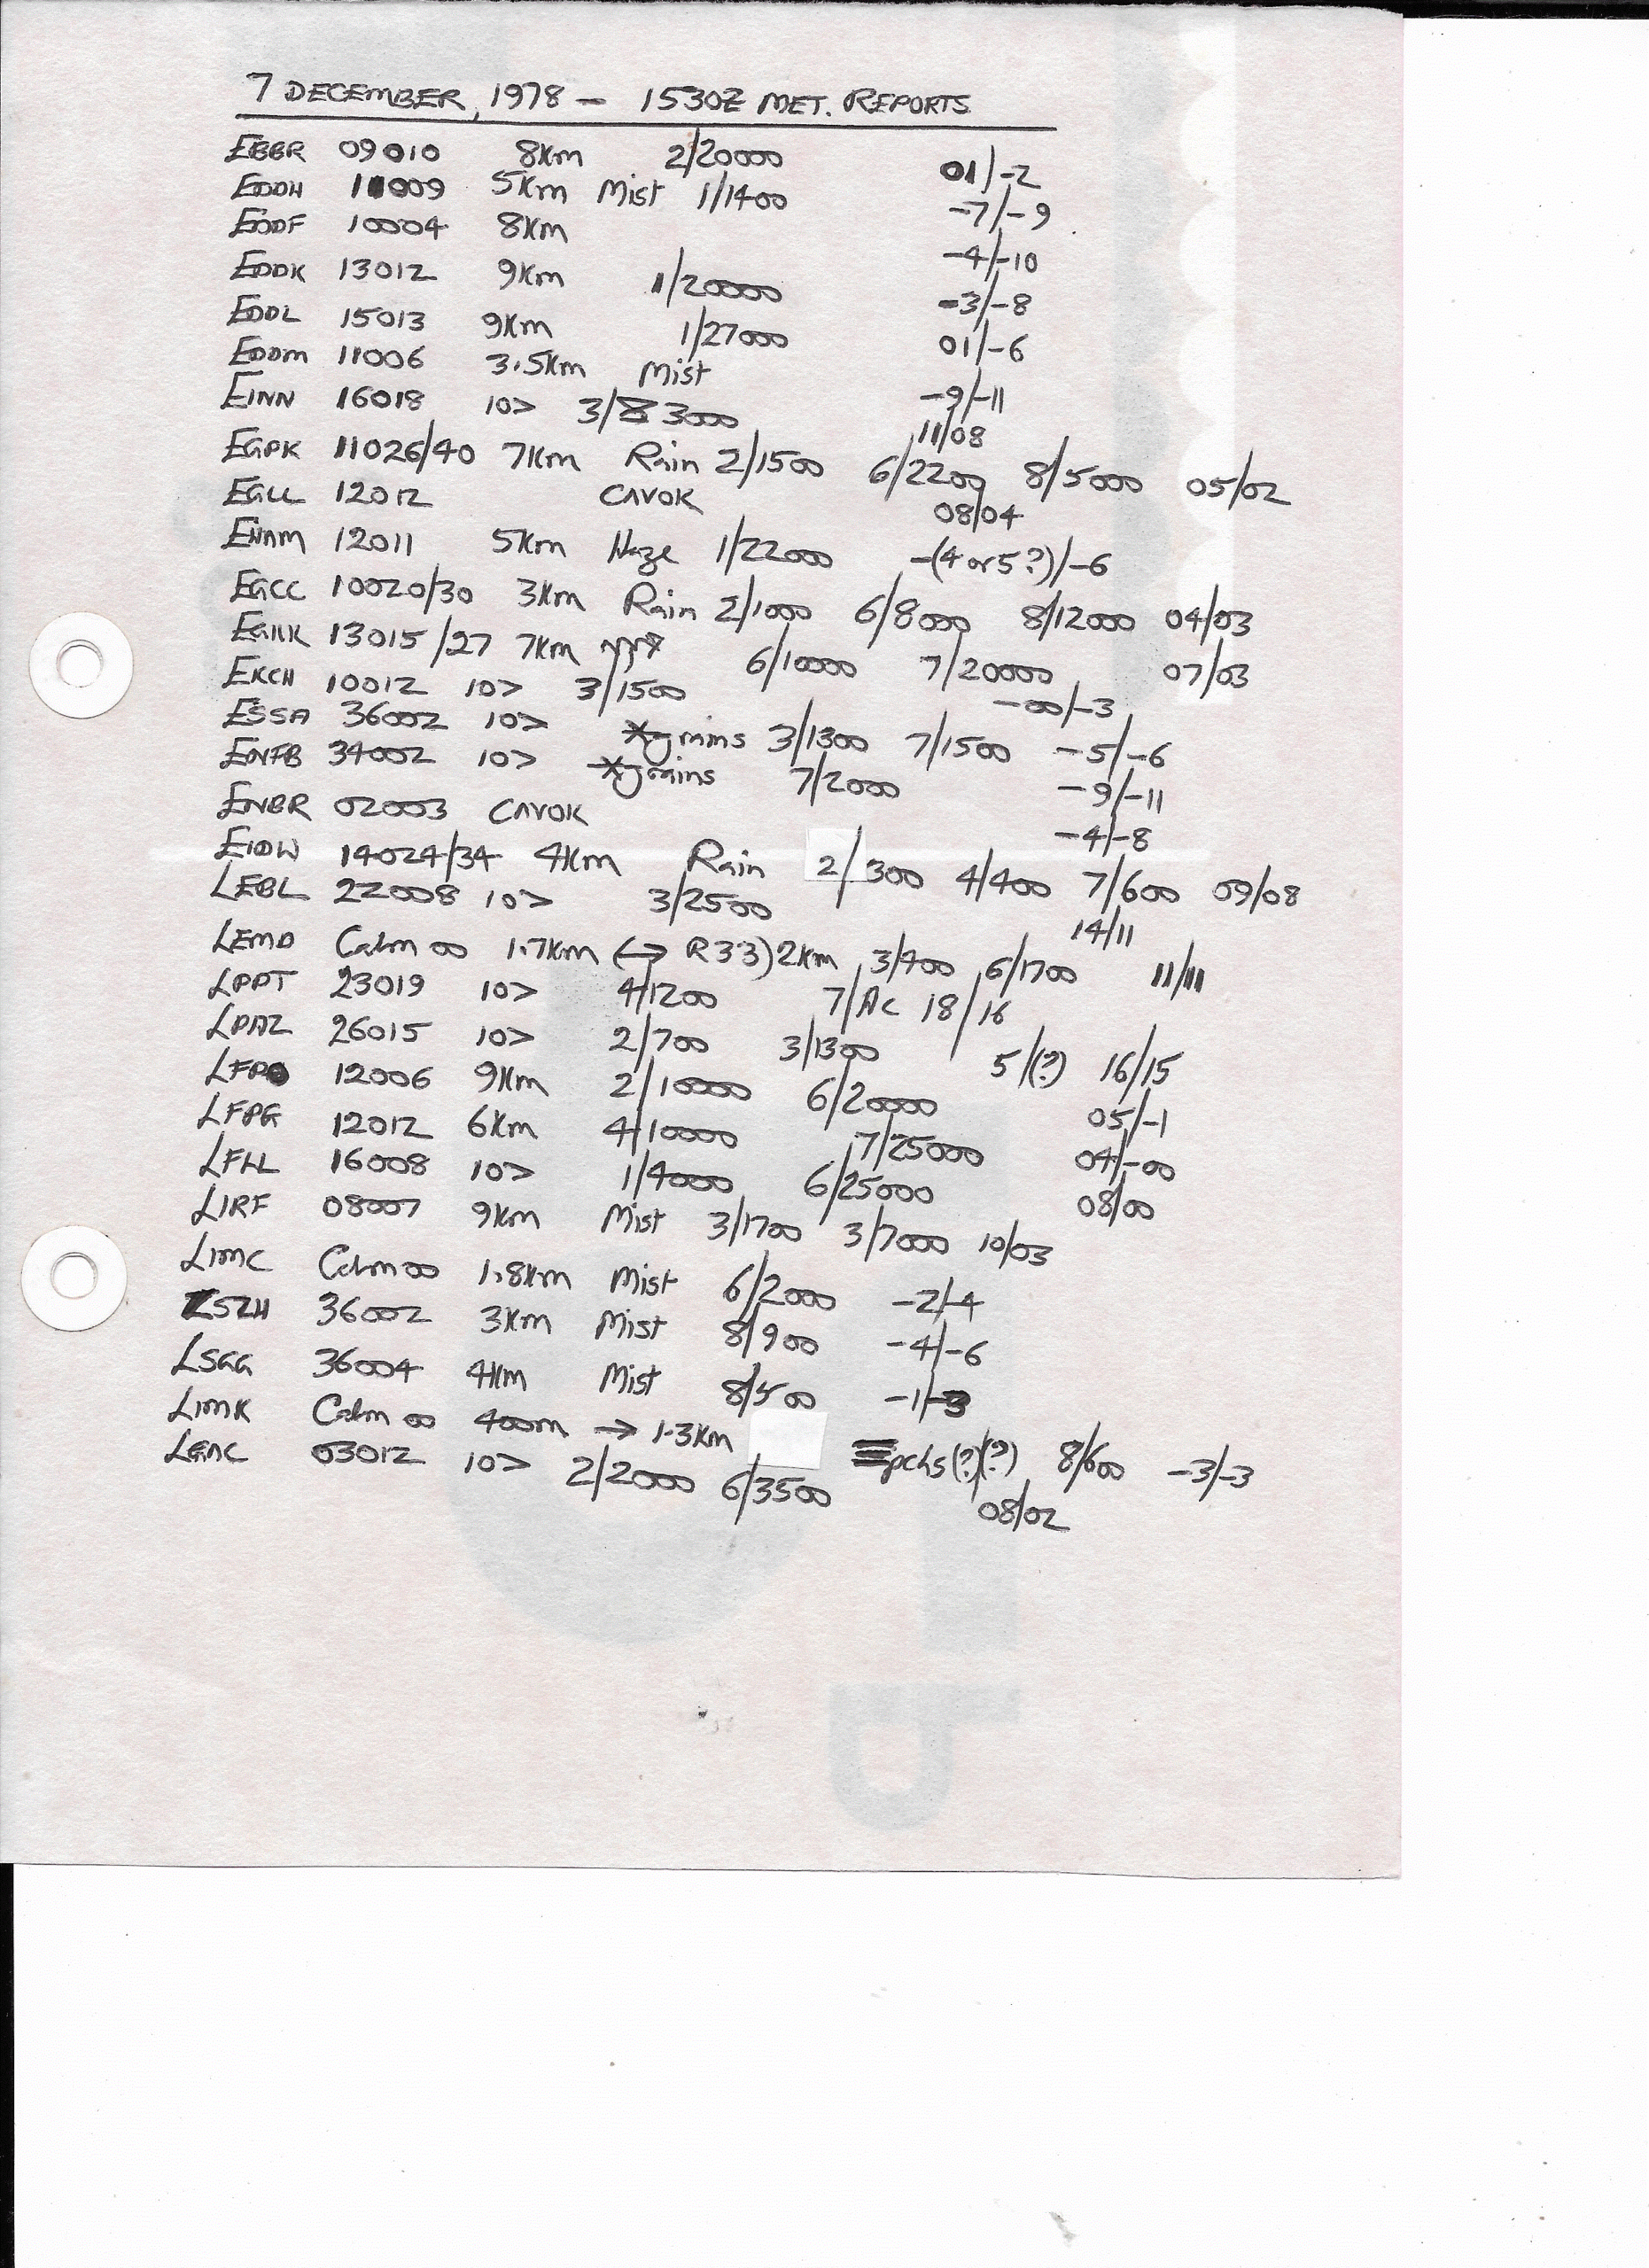 7 DECEMBER, 1978 - 1530Z MET. REPORTS
EBBR 09010 8Km 2/20000 01/-2
EDDH 11009 5Km Mist 1/1400 -7/-9
EDDF 10004 8Km -4/-10
EDDK 13012 9Km 1/20000 -3/-8
EDDL 15013 9Km 1/27000 01/-6
EDDM 11006 3.5Km Mist -9/-11
EINN 16018 10> 3/3000 11/08
EGPK 11026/40 7Km Rain 2/1500 6/2200 8/5000 05/02
EGLL 12012 CAVOK 08/04
EHAM 12011 5Km Haze 1/22000 -(4 or 5?)/-6
EGCC 10020/30 3Km Rain 2/1000 6/8000 8/12000 04/03
EGKK 13015/27 7Km 6/10000 7/20000 07/03
EKCH 10012 10> 3/1500 -00/-3
ESSA 36002 10> *grains 3/1300 7/1500 -5/-6
ENFB 34002 10> *grains 7/2000 -9/-11
ENBR 02003 CAVOK -4/-8
EIDW 14024/34 4Km Rain 2/300 4/400 7/600 09/08
LEBL 22008 10> 3/2500 14/11
LEMD Calm 00 1.7Km (→ R33) 2Km 3/900 6/1700 11/11
LPPT 23019 10> 4/1200 7/Ac 18/16
LPAZ 26015 10> 2/700 3/1300 5/(?) 16/15
LFPO 12006 9Km 2/10000 6/20000 05/-1
LFPG 12012 6Km 4/10000 7/25000 04/-00
LFLL 16008 10> 1/4000 6/25000 08/00
LIRF 08007 9Km Mist 3/1700 3/7000 10/03
LIMC Calm 00 1.8Km Mist 6/2000 -2/-4
LSZH 36002 3Km Mist 8/900 -4/-6
LSGG 36004 4Km Mist 8/500 -1/-3
LIMK Calm 00 400m → 1.3Km ≡pchs(?)(?) 8/600 -3/-3
LGAC 03012 10> 2/2000 6/3500 08/02